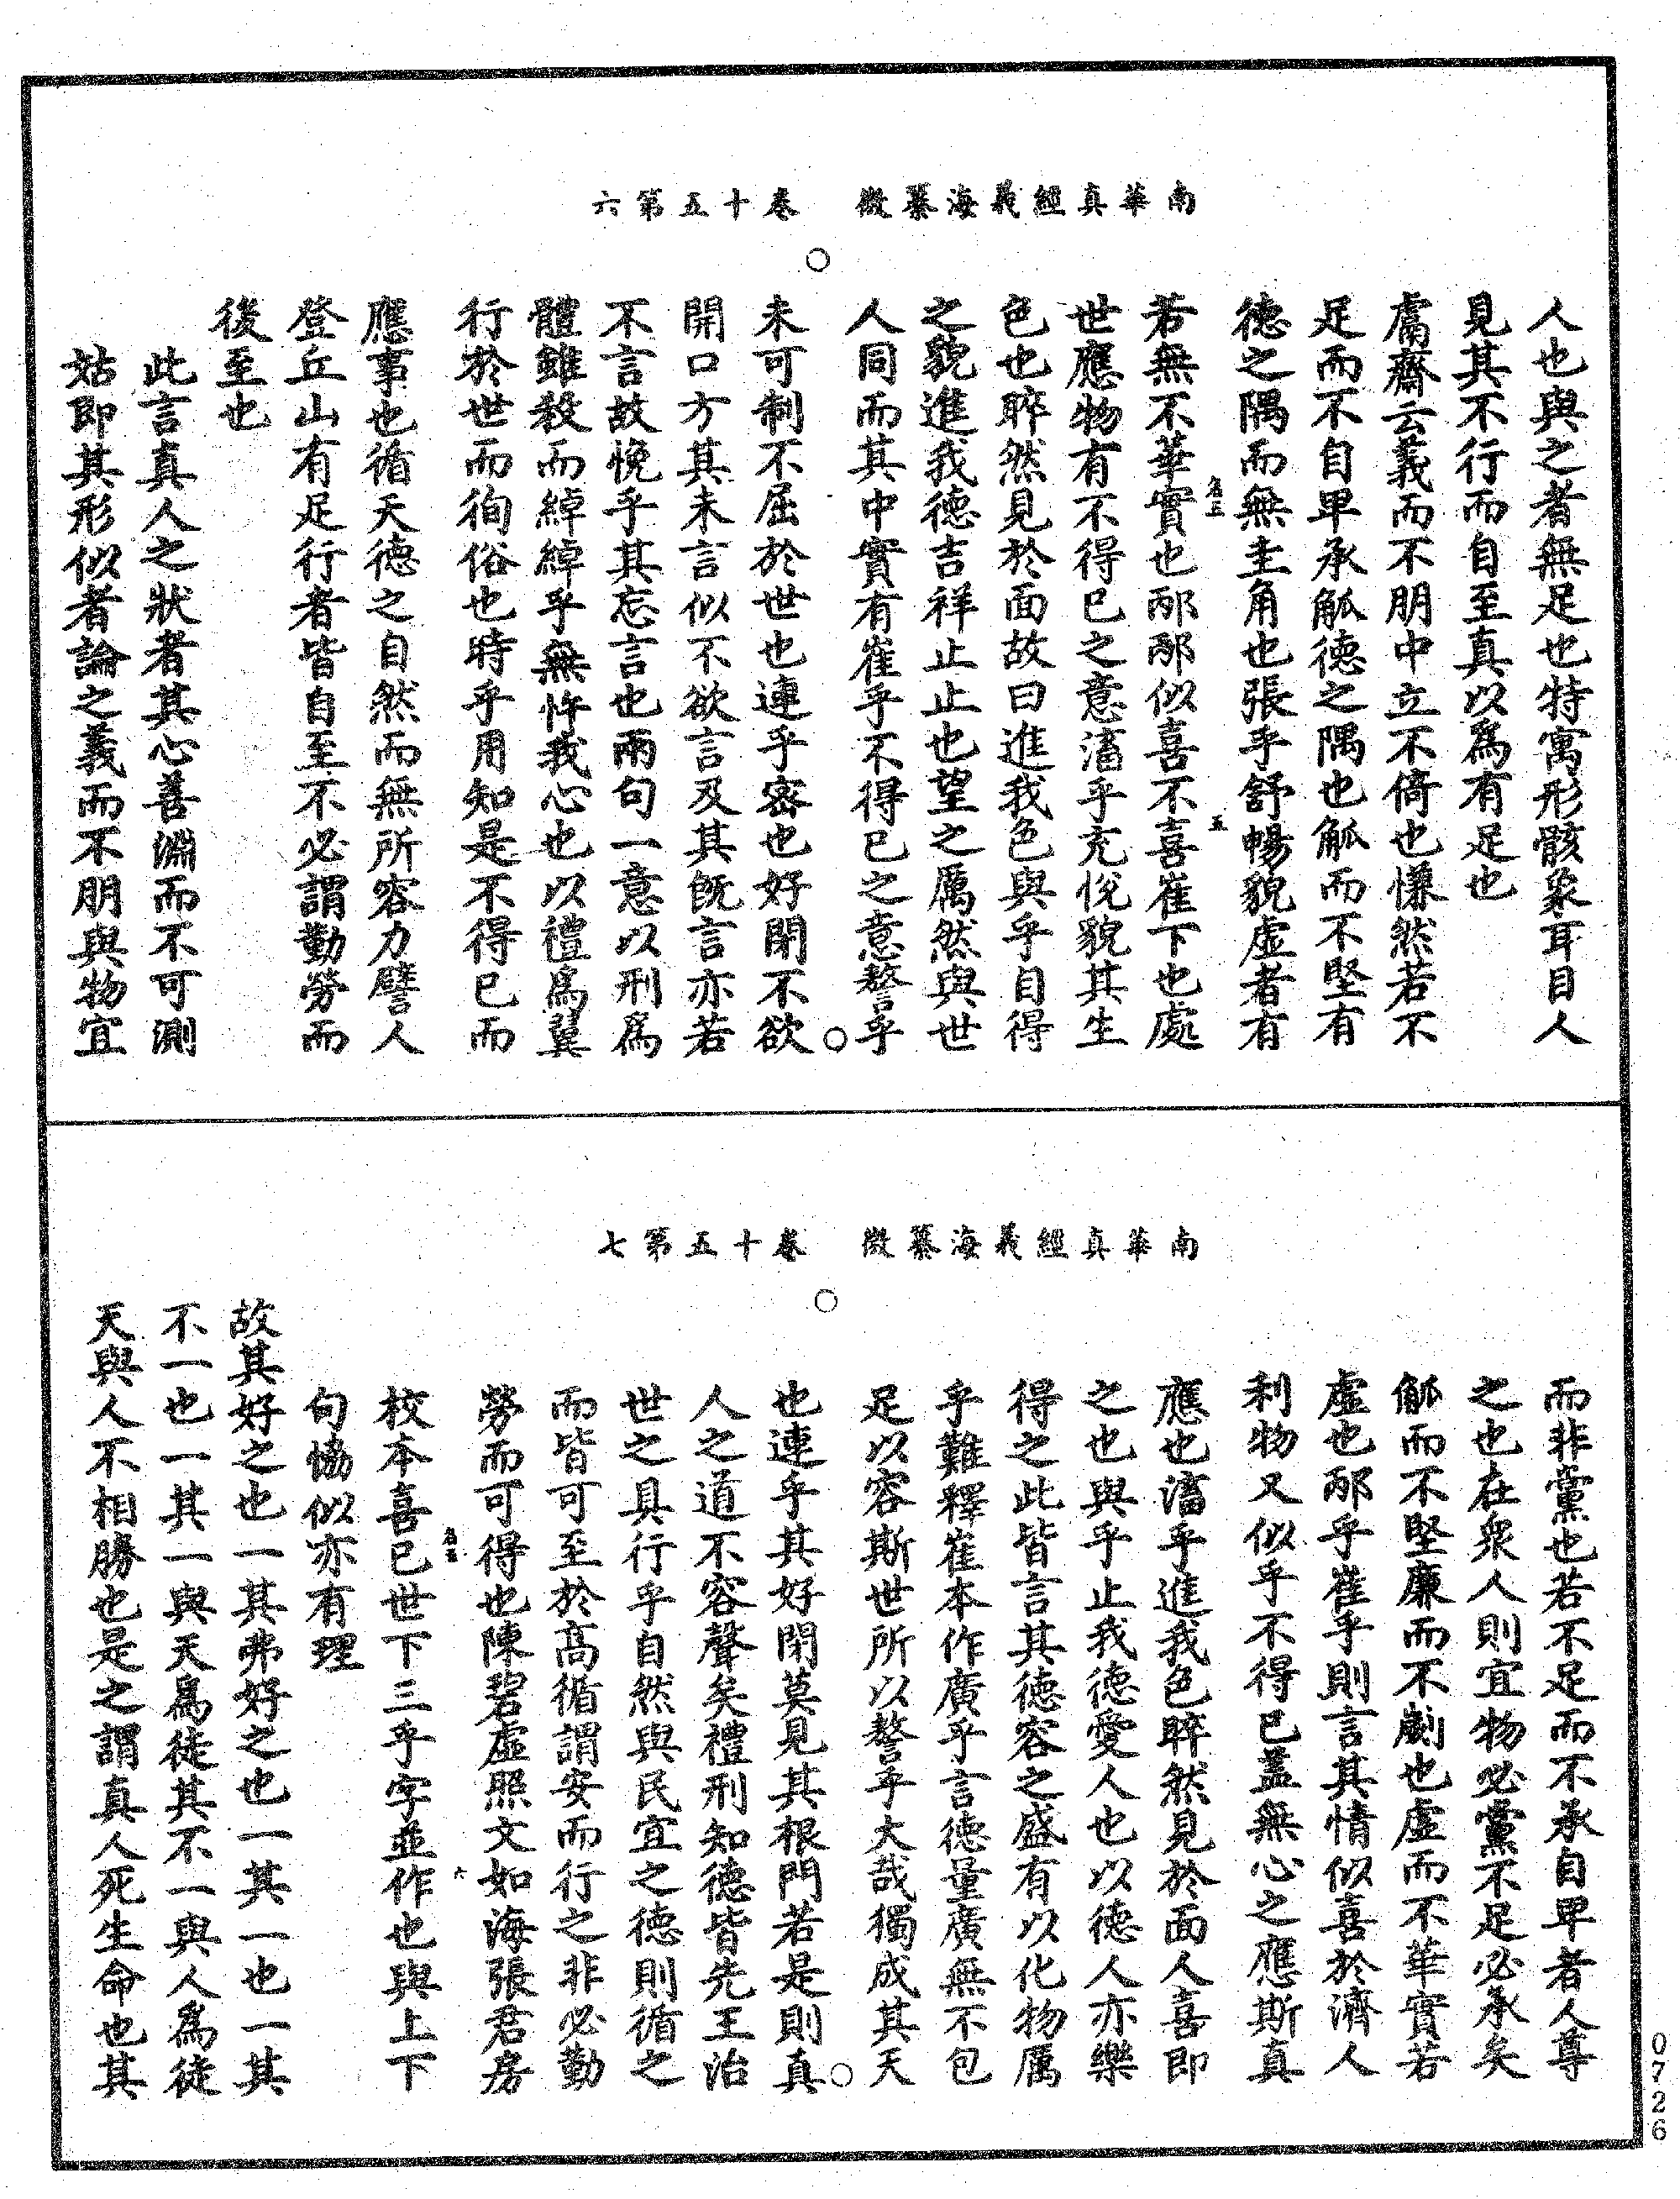 南華真經義海纂微　卷十五第六
人也與之者無足也特寓形骸象耳目人
見其不行而自至真以爲有足也
鬳齋云義而不朋中立不倚也慊然若不
足而不自卑承觚德之隅也觚而不堅有
德之隅而無圭角也張乎舒暢貌虛者有
若無不華實也邴邴似喜不喜崔下也處
世應物有不得已之意滀乎充悅貌其生
色也睟然見於面故曰進我色與乎自得
之貌進我德吉祥止止也望之厲然與世
人同而其中實有崔乎不得已之意謷乎
未可制不屈於世也連乎密也好閉不欲
開口方其未言似不欲言及其旣言亦若
不言故悗乎其忘言也兩句一意以刑爲
體雖殺而綽綽乎無忤我心也以禮爲翼
行於世而徇俗也時乎用知是不得已而
應事也循天德之自然而無所容力譬人
登丘山有足行者皆自至不必謂勤勞而
後至也
此言真人之狀者其心善淵而不可測
姑即其形似者論之義而不朋與物宜
五
南華真經義海纂微　卷十五第七
而非黨也若不足而不承自卑者人尊
之也在衆人則宜物必黨不足必承矣
觚而不堅廉而不劌也虛而不華實若
虛也邴乎崔乎則言其情似喜於濟人
利物又似乎不得已蓋無心之應斯真
應也滀乎進我色睟然見於面人喜即
之也與乎止我德愛人也以德人亦樂
得之此皆言其德容之盛有以化物厲
乎難釋崔本作廣乎言德量廣無不包
足以容斯世所以謷乎大哉獨成其天
也連乎其好閉莫見其根門若是則真
人之道不容聲矣禮刑知德皆先王治
世之具行乎自然與民宜之德則循之
而皆可至於高循謂安而行之非必勤
勞而可得也陳碧虛照文如海張君房
校本喜已世下三乎字並作也與上下
句恊似亦有理
故其好之也一其弗好之也一其一也一其
不一也一其一與天爲徒其不一與人爲徒
天與人不相勝也是之謂真人死生命也其
六
0726